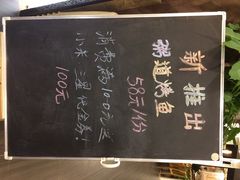 新推出
粥道烤鱼
58元/份
消费满100元送
小米三星代金券!
100元